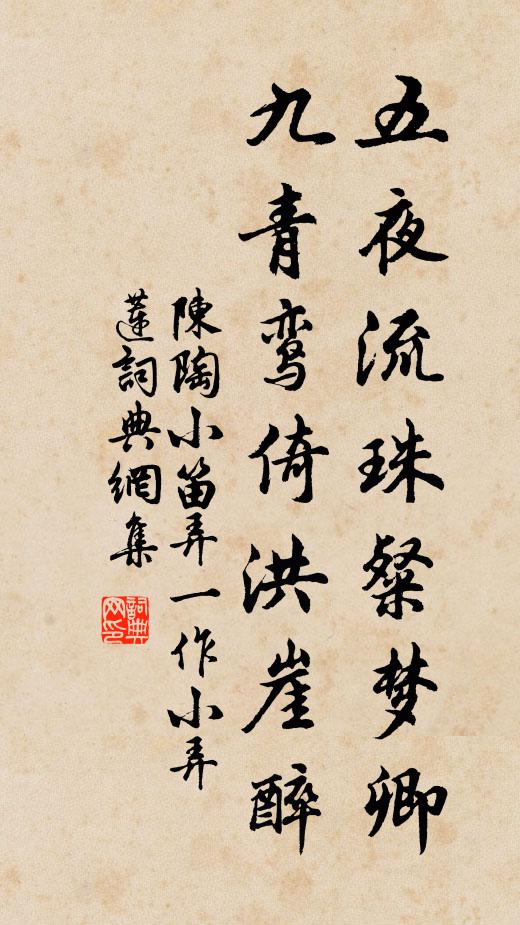 五夜流珠粲梦卿
九青鸾倚洪崖醉
陳陶小笛弄一作小弄
蓮詞典網集
詞典网印